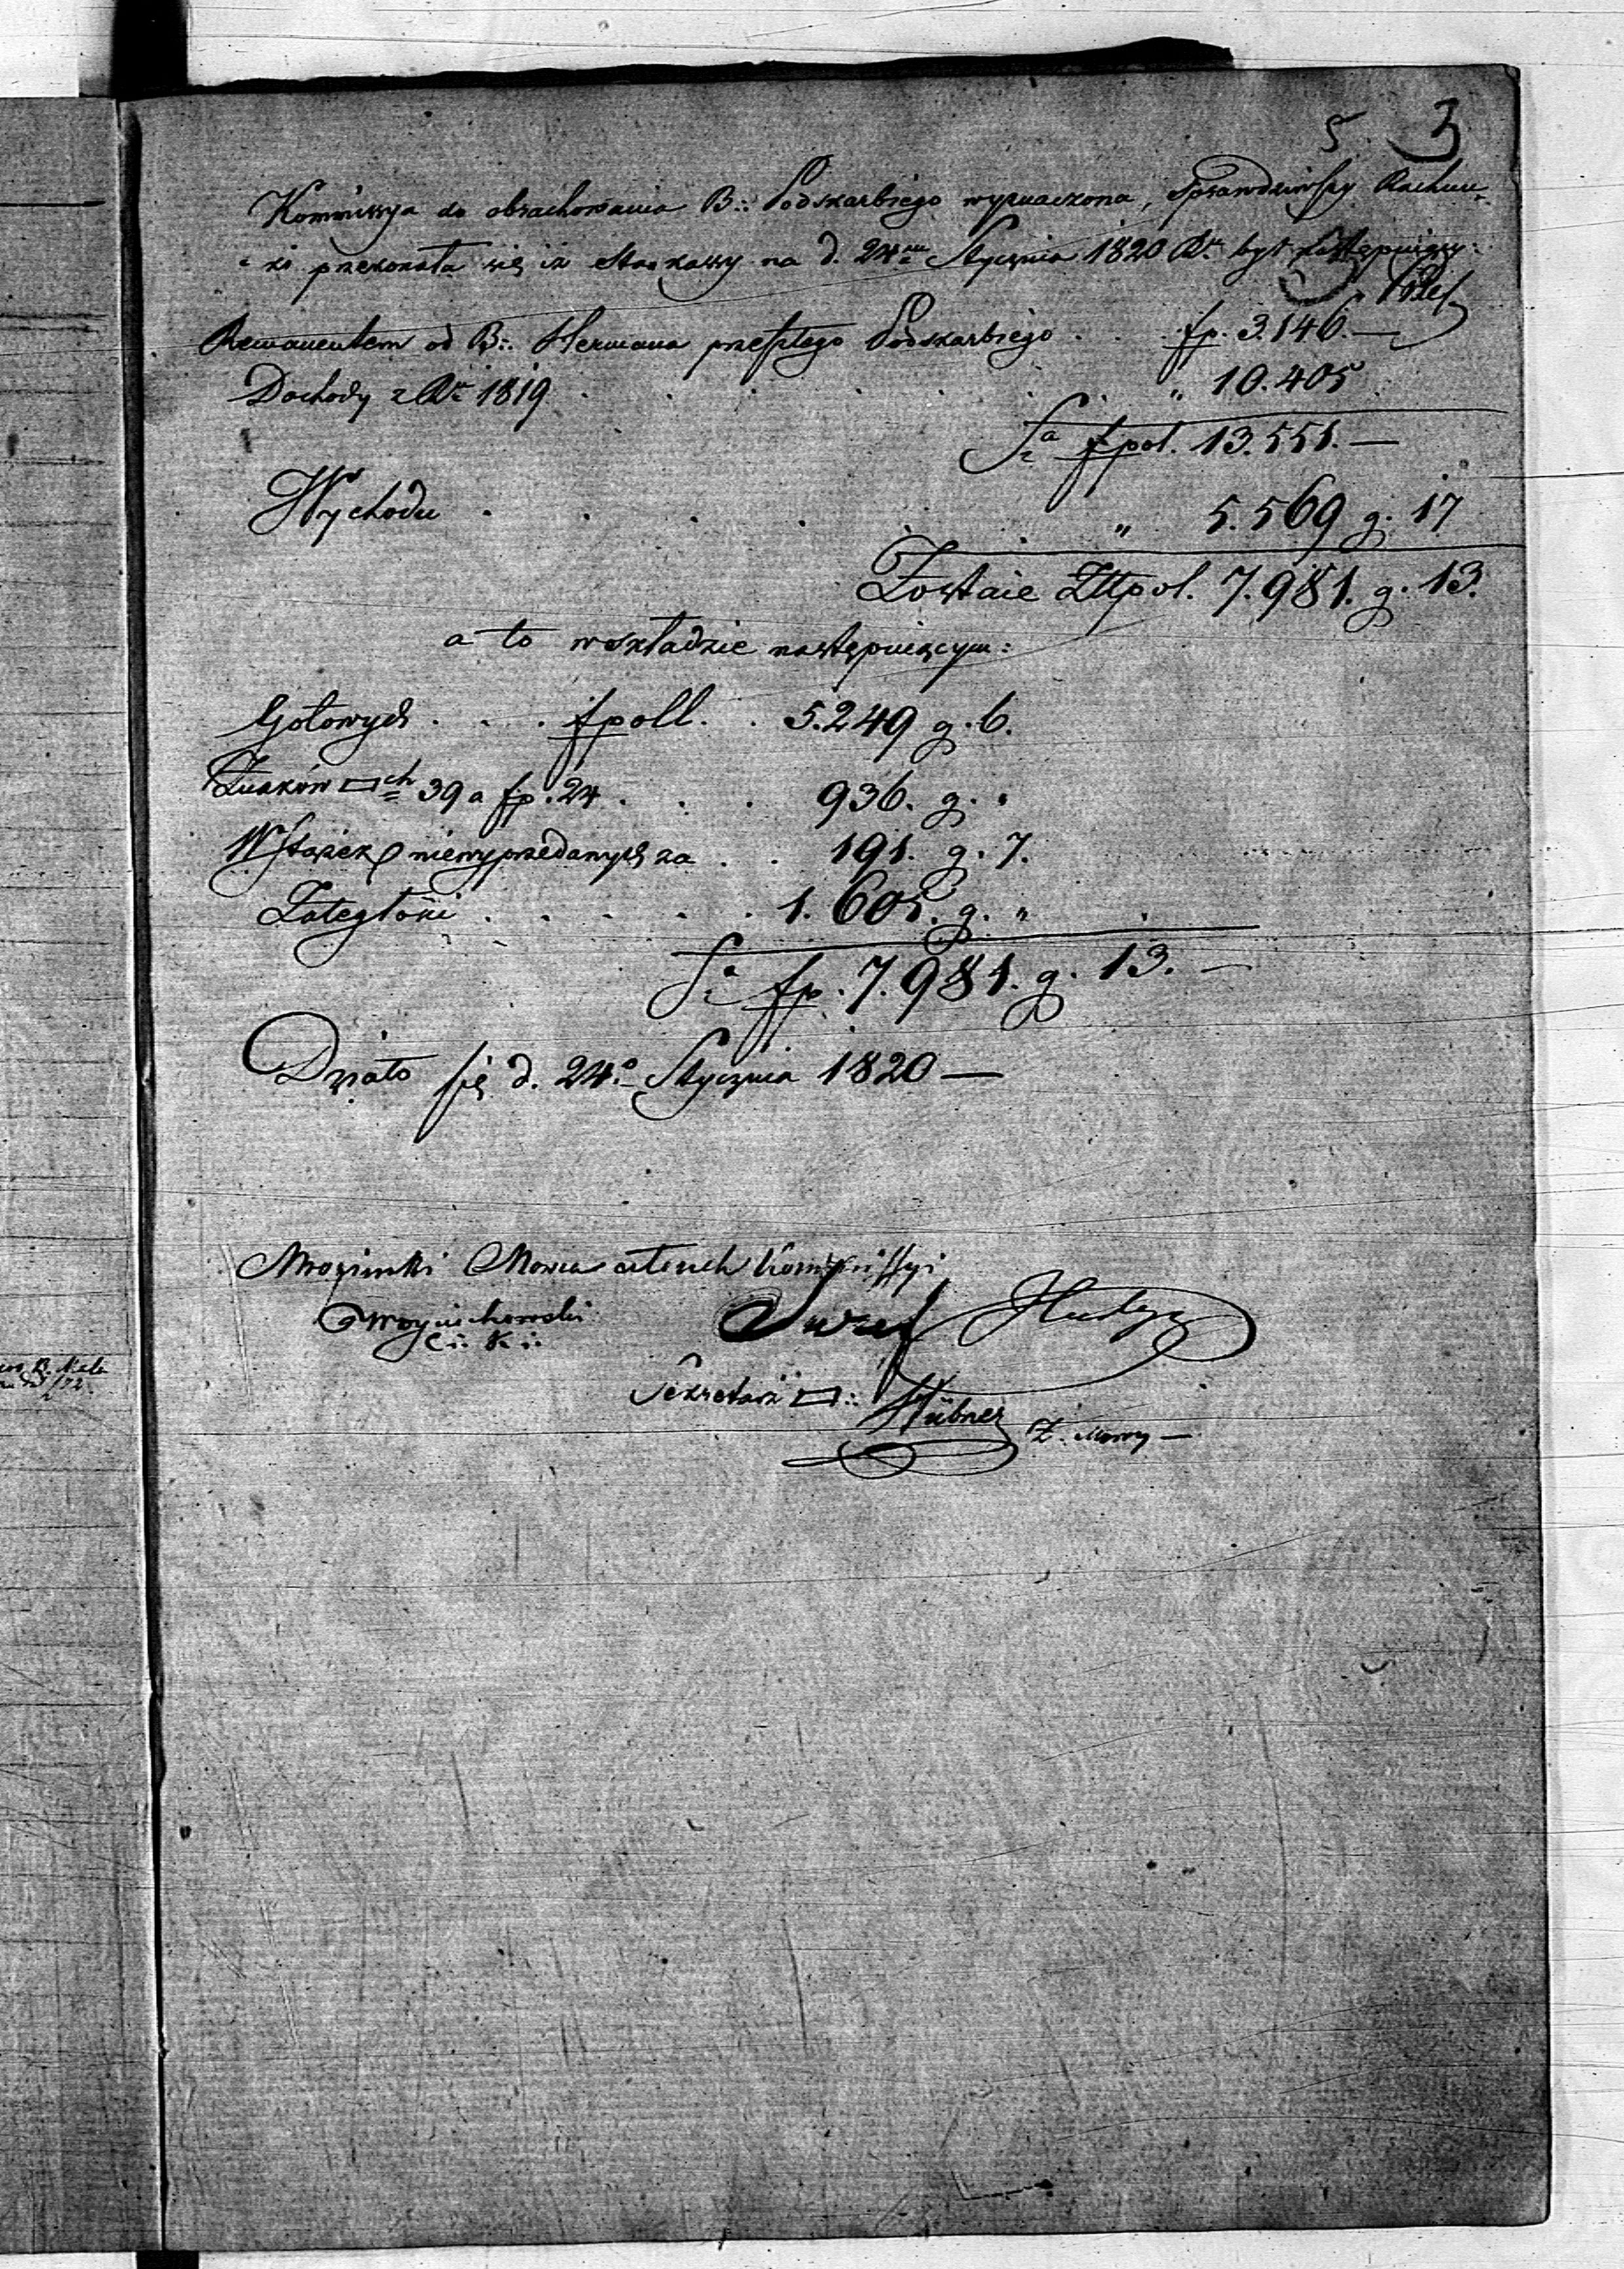 5. 3
Kommissya do obrachowania B∴ Podskarbiego wyznaczona, sprawdziwszy Rachun-
-ki przekonała się iż stan kassy na d. 24m Stycznia 1820 Rr. był następuiący:
Remanentem od B∴ Hermana przeszłego Podskarbiego . . fp. 3.146.—
Dochody z Rr 1819 . . . . . . . . „ 10.405
Sa fpol. 13.551.—
Wychodu . . . . . . „ 5.569 g. 17
Zostaie Złtpol. 7.981. g. 13.
a to w składzie następuiącym:
Gotowych . . . fpoll. . 5.249 g. 6.
Znaków ▭ch 39 a fp. 24 . . . 936. g. „
Wstążek niewyprzedanych za . . 191. g. 7.
Zaległości . . . . . 1.605. g. „
Sa fp. 7.981. g. 13.—
Działo się d. 24o Stycznia 1820 —
Mowca członek Kommissyi
Woyciechowski
C∴ K∴
Józef
Sekretarz ▭∴ Hübner Z. Mowcy —